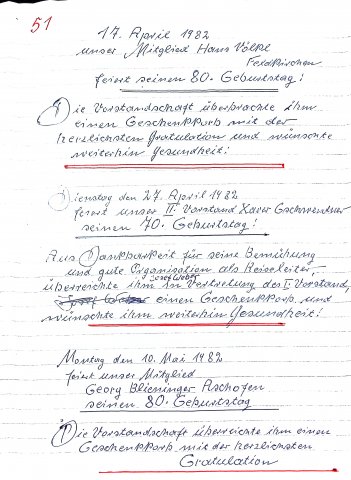 51
17. April 1982
unser Mitglied Hans Völkl
Feldkirchen
feiert seinen 80. Geburtstag!
Die Vorstandschaft überbrachte ihm
einen Geschenkkorb mit der
herzlichsten Gratulation und wünschte
weiterhin Gesundheit!
Dienstag den 27. April 1982
feiert unser II. Vorstand Xaver Gschwendtner
seinen 70. Geburtstag!
Aus Dankbarkeit für seine Bemühung
und gute Organisation als Reiseleiter,
Josef Weber
überreichte ihm in Vertretung des I. Vorstand,
einen Geschenkkorb und
wünschte ihm weiterhin Gesundheit!
Montag den 10. Mai 1982
feiert unser Mitglied
Georg Blieninger Aschofen
seinen 80. Geburtstag
Die Vorstandschaft überreichte ihm einen
Geschenkkorb mit der herzlichsten
Gratulation